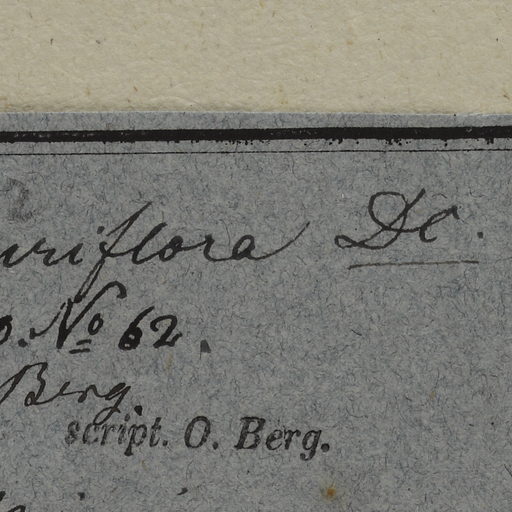 uriflora DC.
o. No 62.
Berg.
script. O. Berg.